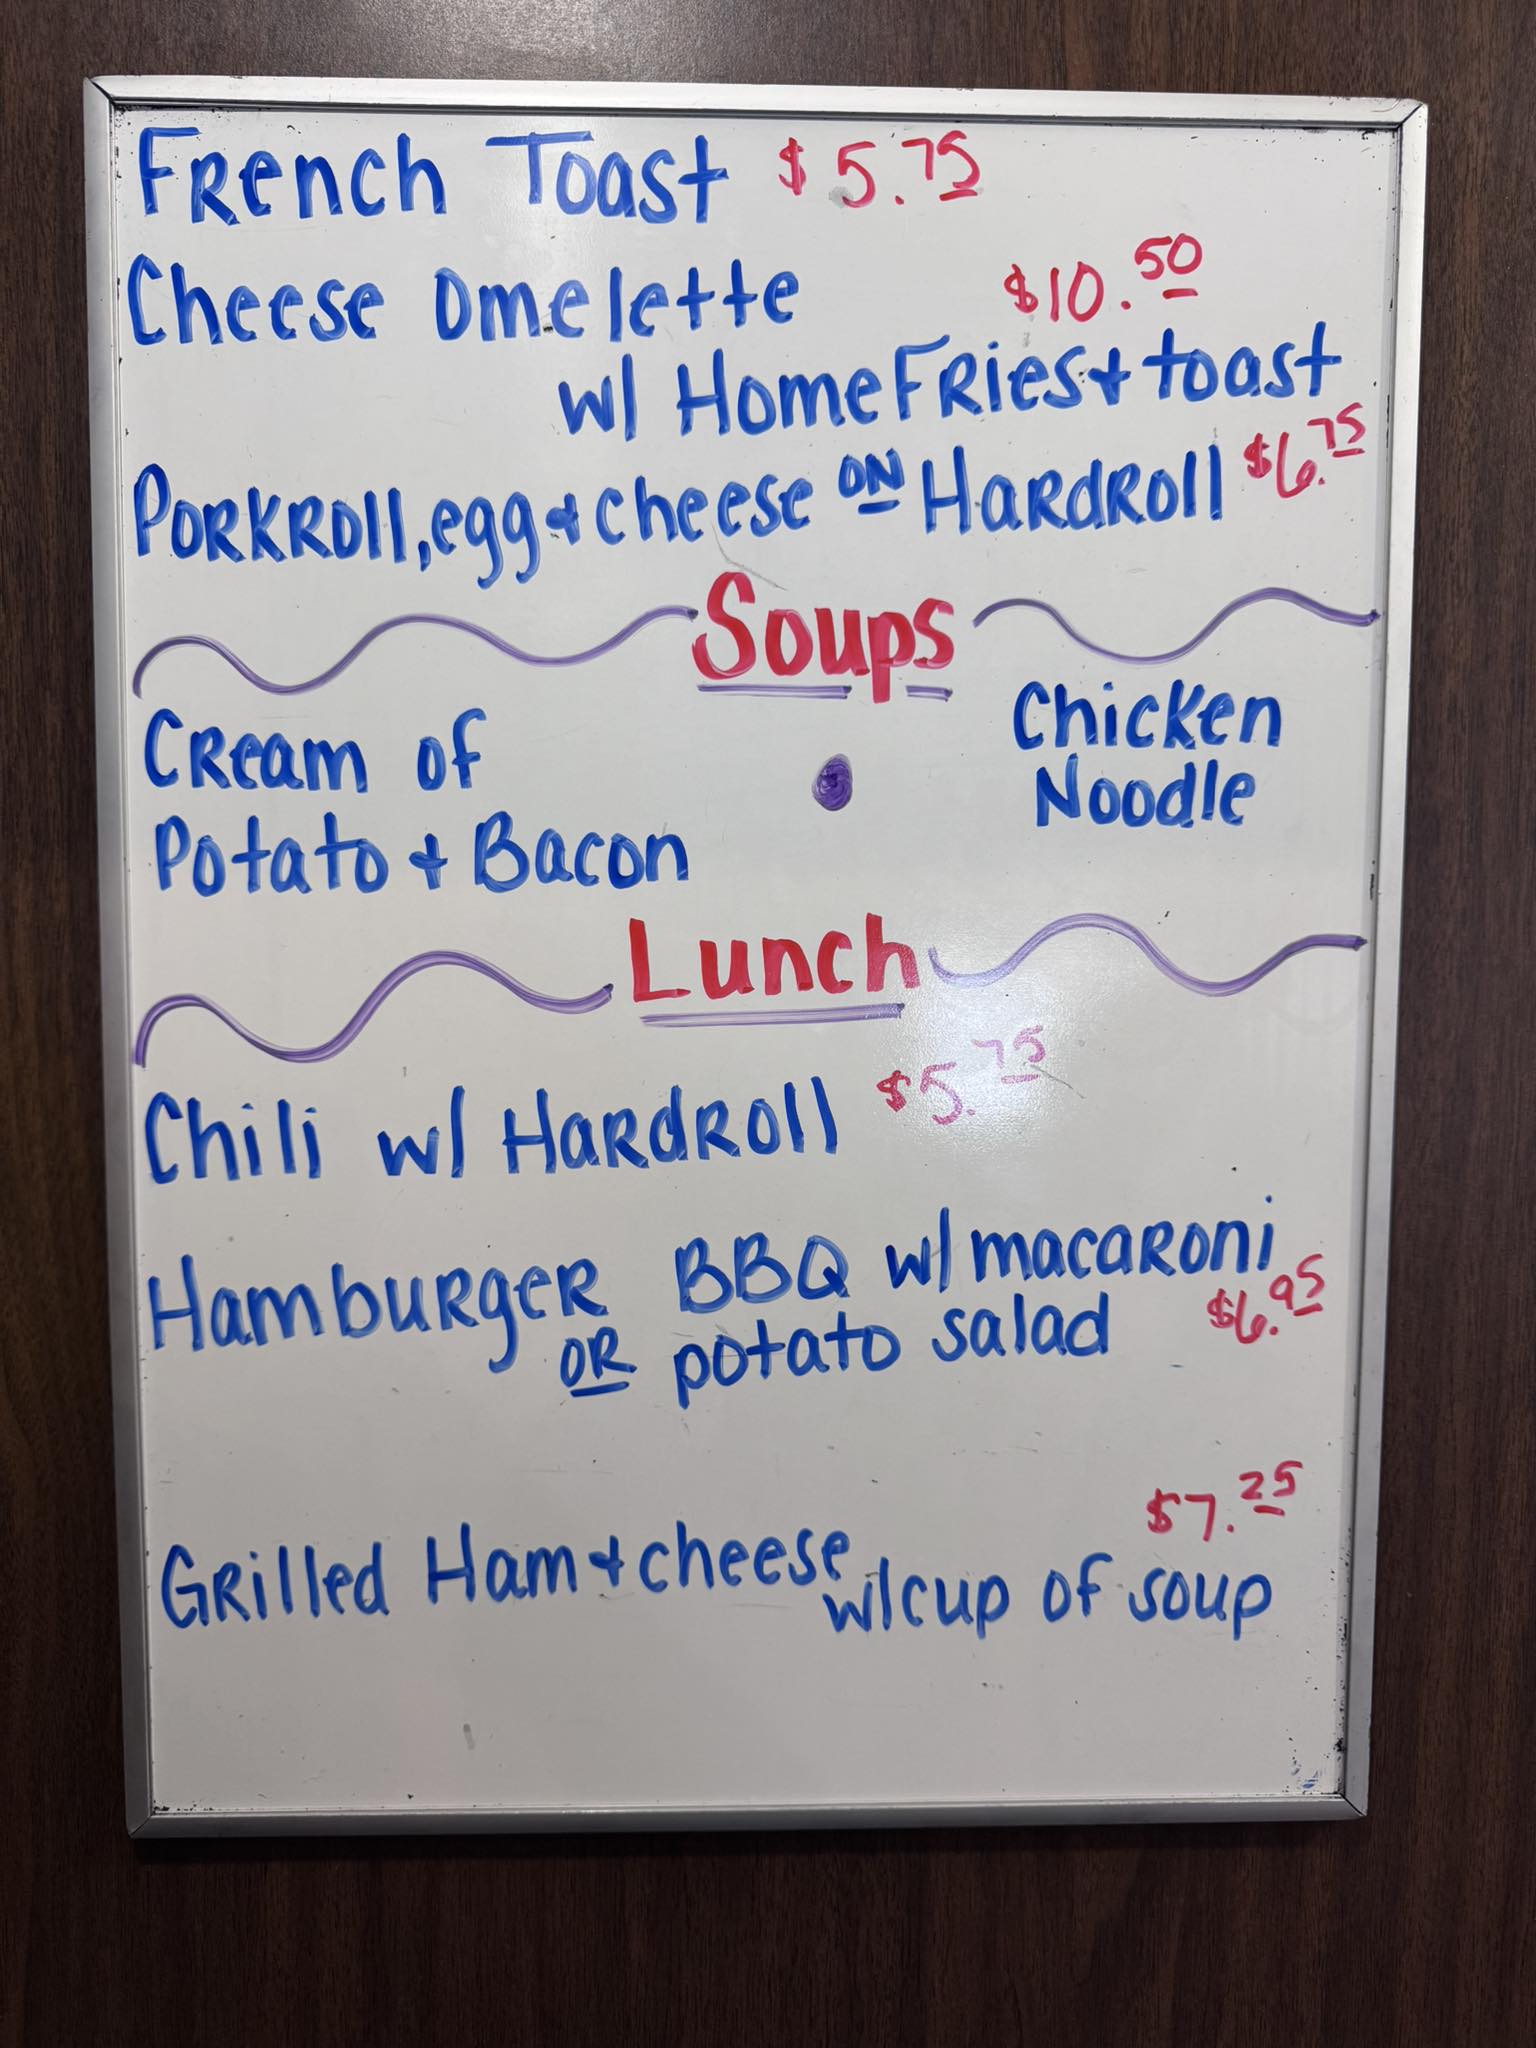 French Toast $5.75
Cheese Omelette $10.50
w/ Home Fries & toast
Porkroll, egg & cheese on Hardroll $6.75
Soups
Cream of
Potato & Bacon
Chicken
Noodle
Lunch
Chili w/ Hardroll $5.75
Hamburger BBQ w/ macaroni
or potato salad $6.95
$7.25
Grilled Ham & cheese
w/ cup of soup